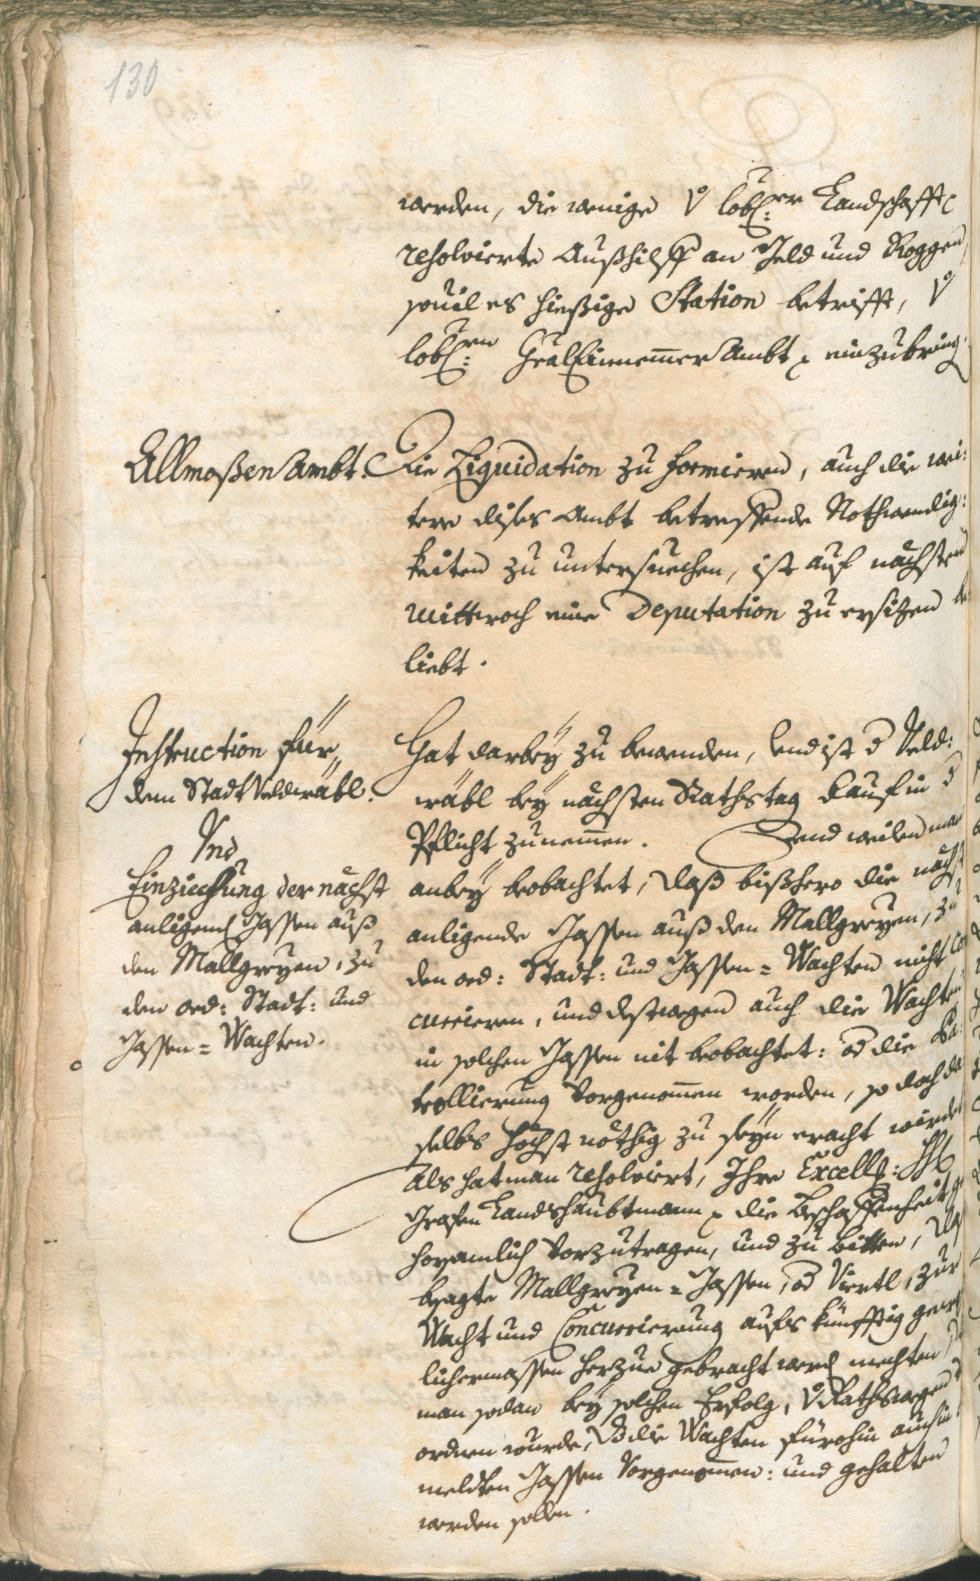 130
werden, die wenige V löbl:er Landschafft
resolvierte Außhilff an Geld und Roggen
souil es hiesige Station betrifft, V
löbl:en GralEinnemmer Ambt einzubring
Allmosen Ambt.
Die Liquidation zu formieren, auch die wei:
tere dises Ambt betreffende Nothwendig:
keiten zu untersuechen, ist auf nächsten
Mittwoch eine Deputation zu ersizen be
liebt.
Instruction für
dem Stadt Veldwäbl.
Vnd
Einziechung der nächst
anligend Gassen auß
den Mallgreyen, zu
den ord: Stadt: und
Gassen=Wachten.
Hat darbey zu bewenden, vnd ist d Veld:
wäbl bey nächsten Rathstag darauf in d
Pflicht zunemmen. Vnd weilen man
anbey beobachtet, daß bißhero die nächst
anligende Gassen auß den Mallgreyen, zu
den ord: Stadt: und Gassen=Wachten nicht con
currieren, und destwegen auch die Wachten
in solchen Gassen nit beobachtet: od die Pa
trollierung vorgenommen worden, so doch da
selbs höchst nöthig zu seyn eracht wirdet
Als hat man resolviert, Ihro Excell:
Grafen Landshaubtmann die Beschaffenheit
horsamlich vorzutragen, und zu bitten, daß
besagte Mallgreyen=Gassen, od Viertl, zur
Wacht und Concurrierung aufs künfftig
lichermassen herzue gebracht werd mechten
man sodan bey solchen Erfolg, V Rathswegen
ordnen wurde, dß die Wachten fürohin auch in
meldten Gassen vorgenommen: und gehalten
werden sollen.